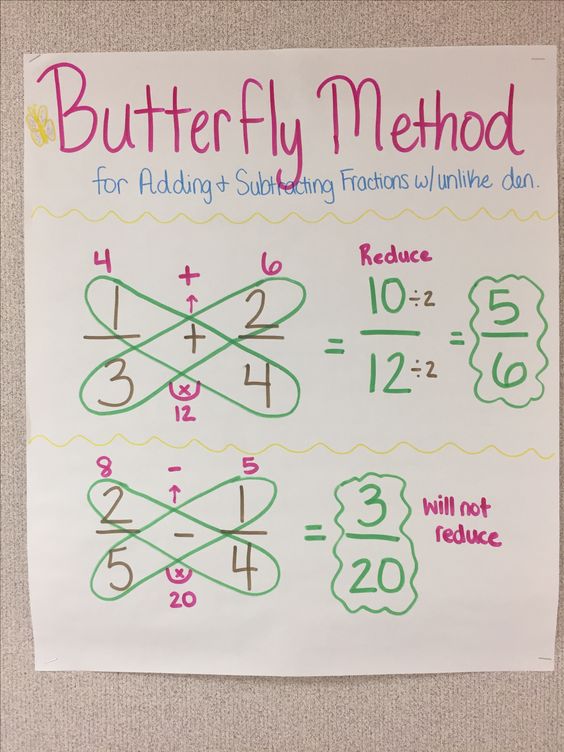 Butterfly Method
for Adding + Subtracting Fractions w/unlike den.
4 + 6 Reduce
↑
1/3 + 2/4 = 10÷2/12÷2 = 5/6
(x)
12
8 - 5
↑
2/5 - 1/4 = 3/20 will not reduce
(x)
20